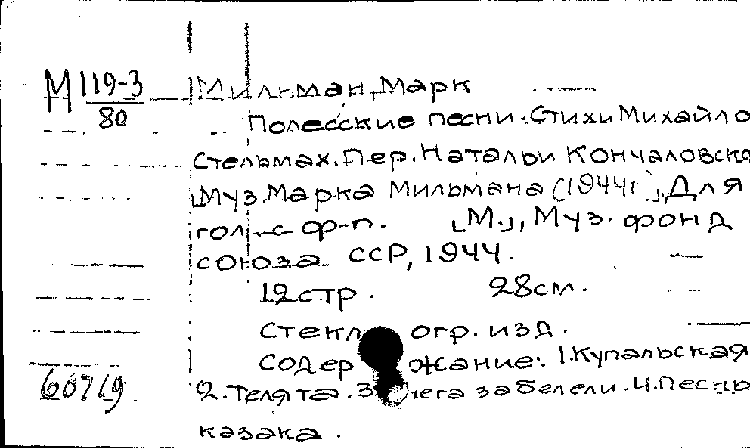 М 119-3
80
Мильман, Марк
Полесские песни. Стихи Михайло
Стельмах. Пер. Натальи Кончаловско
Муз. Марка Мильмана (1944г.). Для
гол. с ф-п. [М.], Муз. фонд
союза ССР, 1944.
12 стр. 28 см.
Стеклогр. изд.
Содержание: 1. Купальская
2. Телята. 3. забелели. 4. Песнь
казака.
60719